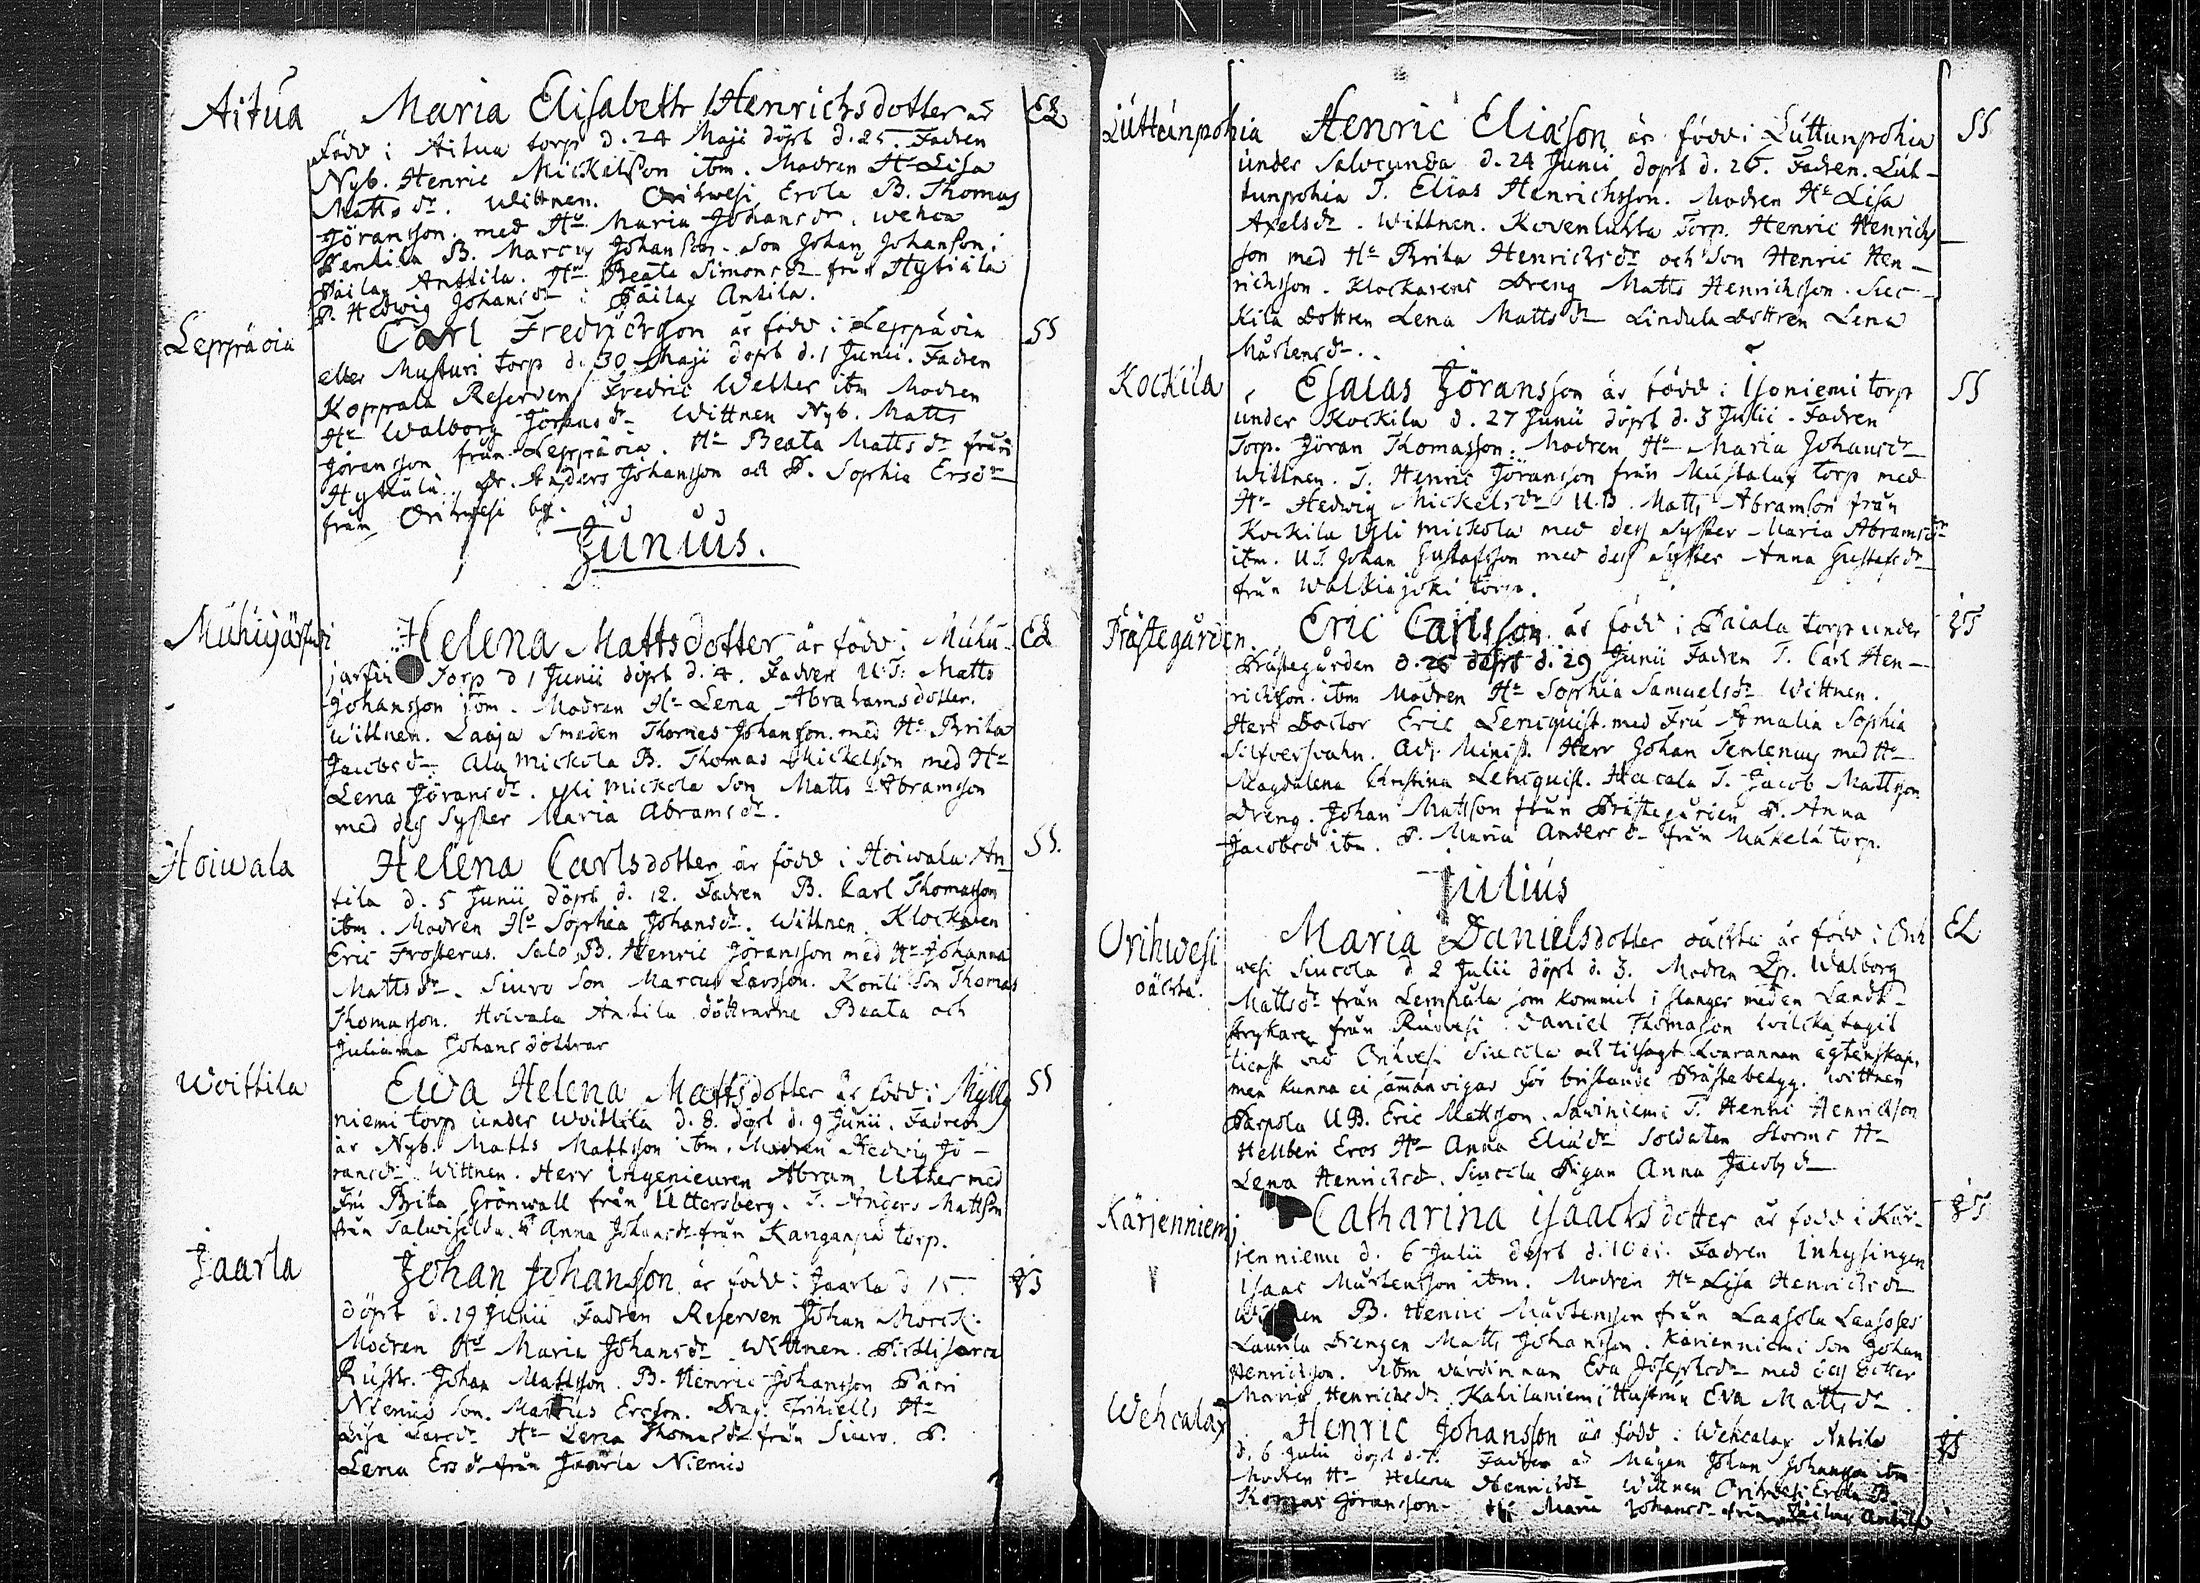 Aitua Maria Elisabeth Henrichsdotter är EL
född i Aitua torp d. 24 Maji döpt d. 25. Fadren
Nyb. Henric Mickelsson ibm. Modren Hu Lisa
Matts dr. Wittnen. Orihwesi Erola B. Thomas
Jöransson. med Hu Maria Johans dr. Wehca
Penttila B. Marcus Johansson. Son Johan Johansson i
Päilax Anttila. Hu Beata Simons dr från Hytiälä
P. Hedwig Johans dr i Päilax Antila.
Leppäoia Carl Fredricksson är född i Leppäoia SS
eller Musturi torp d. 30 Maji döpt d. 1 Junii. Fadren
Koppala Reserven Fredric Welther ibm Modren
Hu Walborg Jörans dr Wittnen Nyb. Matts
Jöransson från Leppäoia. Hu Beata Matts dr från
Hytiälä, Dr. Anders Johansson och P. Sophia Ers dr
från Orihwesi by.
Junius.
Muhujärfwi Helena Mattsdotter är född i Muhu- EL
jarfwi Torp d 1 Junii döpt d. 4. Fadren U.T. Matts
Johansson ibm. Modren Hu Lena Abrahamsdotter.
Wittnen. Laaja Smeden Thomas Johansson. med Hu Brita
Jacobs dr Ala Mickola B. Thomas Mickelsson med Hu
Lena Jörans dr. Yli Mickola Son Matts Abramsson
med dess Syster Maria Abrams dr.
Hoiwala Helena Carlsdotter är född i Hoiwala An- SS.
tila d. 5 Junii döpt d. 12. Fadren B. Carl Thomasson
ibm. Modren Hu Sophia Johans dr. Wittnen. Klockaren
Eric Frosterus. Salo B. Henric Jöransson med Hu Johanna
Matts dr. Siuro Son Marcus Larsson. Konli Son Thomas
Thomasson. Hoivala Antila döttrarne Beata och
Juliana Johans döttrar
Woittila Ewa Helena Mattsdotter är född i Mylly SS
niemi torp under Woittila d. 8. döpt d. 9 Junii. Fadren
är Nyb. Matts Mattsson ibm. Modren Hedwig Jö-
rans dr Wittnen. Herr Ingenieuren Abram Uther med
Fru Brita Grönwall från Uttersberg. T. Anders Mattsson
från P. Anna Johans dr från Kangaspä torp.
Jaarla Johan Johansson är född i Jaarla d 15 JT
döpt d. 19 Junii Fadren Reserven Johan Morck.
Modren Hu Maria Johans dr Wittnen. Pitkisarca
Rustr. Johan Mattsson. B. Henric Johansson Päiri
Niemis Son. Marcus Ersson. Drag. Hu
Lisa Lars dr Hu Lena Thomas dr från Siuro. P.
Lena Ers dr från Jaarla Niemis
Luttunpohia Henric Eliason är född i Luttunpohia SS
under Selocunda d. 24 Junii döpt d. 26. Fadren. Lut-
tunpohia T. Elias Henrichsson. Modren Hu Lisa
Axels dr. Wittnen. Kovenlahta Torp. Henric Henrichs
son med Hu Brita Henrichs dr och Son Henric Hen-
richsson. Klockarens Dreng Matts Henrichsson. Sec-
kila Dottren Lena Matts dr Lindula Dottren Lena
Mårtens dr.
Kockila Esaias Jöransson är född i Isoniemi torp SS
under Kockila d. 27 Junii döpt d. 3 Julii. Fadren
Torp. Jöran Thomasson. Modren Hu Maria Johans dr
Wittnen. T. Henric Jöransson från Mustalax torp med
Hu Hedwig Mickels dr U.B. Matts Abramson från
Kockila Yli Mickola med dess Syster Maria Abrams dr
ibm. U.T. Johan Gustafsson med dess Syster Anna Gustafs dr
från Walkiajoki torp.
Prästegården Eric Carlsson är född i Paiala torp under JT
Prästegården d. 26 döpt d. 29 Junii Fadren T. Carl Hen-
richsson ibm Modren Hu Sophia Samuels dr Wittnen.
Herr Doctor Eric Lencquist. med Fru Amalia Sophia
Silfversvahn. Adj. Minist. Herr Johan Terlenius med Hu
Magdalena Christina Lencquist. Hacala T. Jacob Mattsson
Dreng. Johan Mattsson från Prästegården P. Anna
Jacobs dr ibm. P. Maria Anders dr från Mäkelä torp.
Julius
Orihwesi oächta. Maria Danielsdotter oächta är född i Orih EL
wesi Siucola d 2 Julii döpt d. 3. Modren Qp. Walborg
Matts dr från Lempäla som kommit i slanger med en Landt-
strykare från Ruowesi Daniel Thomasson hvilcka tagit
tienst vid Orihwesi Siucola och tilsagt hvarannan ägtenskap,
men kunna ei sammanvigas för bristande Prästebetyg. Wittnen
Parpola U.B. Eric Mattsson. Sawiniemi T. Henric Henricsson
Eros Hu Anna Elias dr Soldaten Storms Hu
Lena Henrics dr. Siucola Pigan Anna Jacobs dr
Kärjenniemi Catharina Isaacksdotter är född i Kär- JT
jenniemi d. 6 Julii döpt d. 10 ei. Fadren Inhysingen
Isaac Mårtensson ibm. Modren Hu Lisa Henrichs dr
Wittnen B. Henric Mårtensson från Laasola Laasoses
Laurila Drengen Matts Johansson. Kärienniemi Son Johan
Henricsson. ibm värdinnan Eva Josephs dr med dess Dotter
Maria Henrichs dr. Kahilaniemi Hustrun Eva Matts dr.
Wehcalax Henric Johansson är född i Wehcalax Antila JT
d. 6 Julii döpt d. 7. Fadren är Mågen Johan Johansson ibm
Modren Hu Helena Henrics dr Wittnen Orihwesi Erola B.
Thomas Jöransson. Hu Maria Johans dr från Päilax Antila